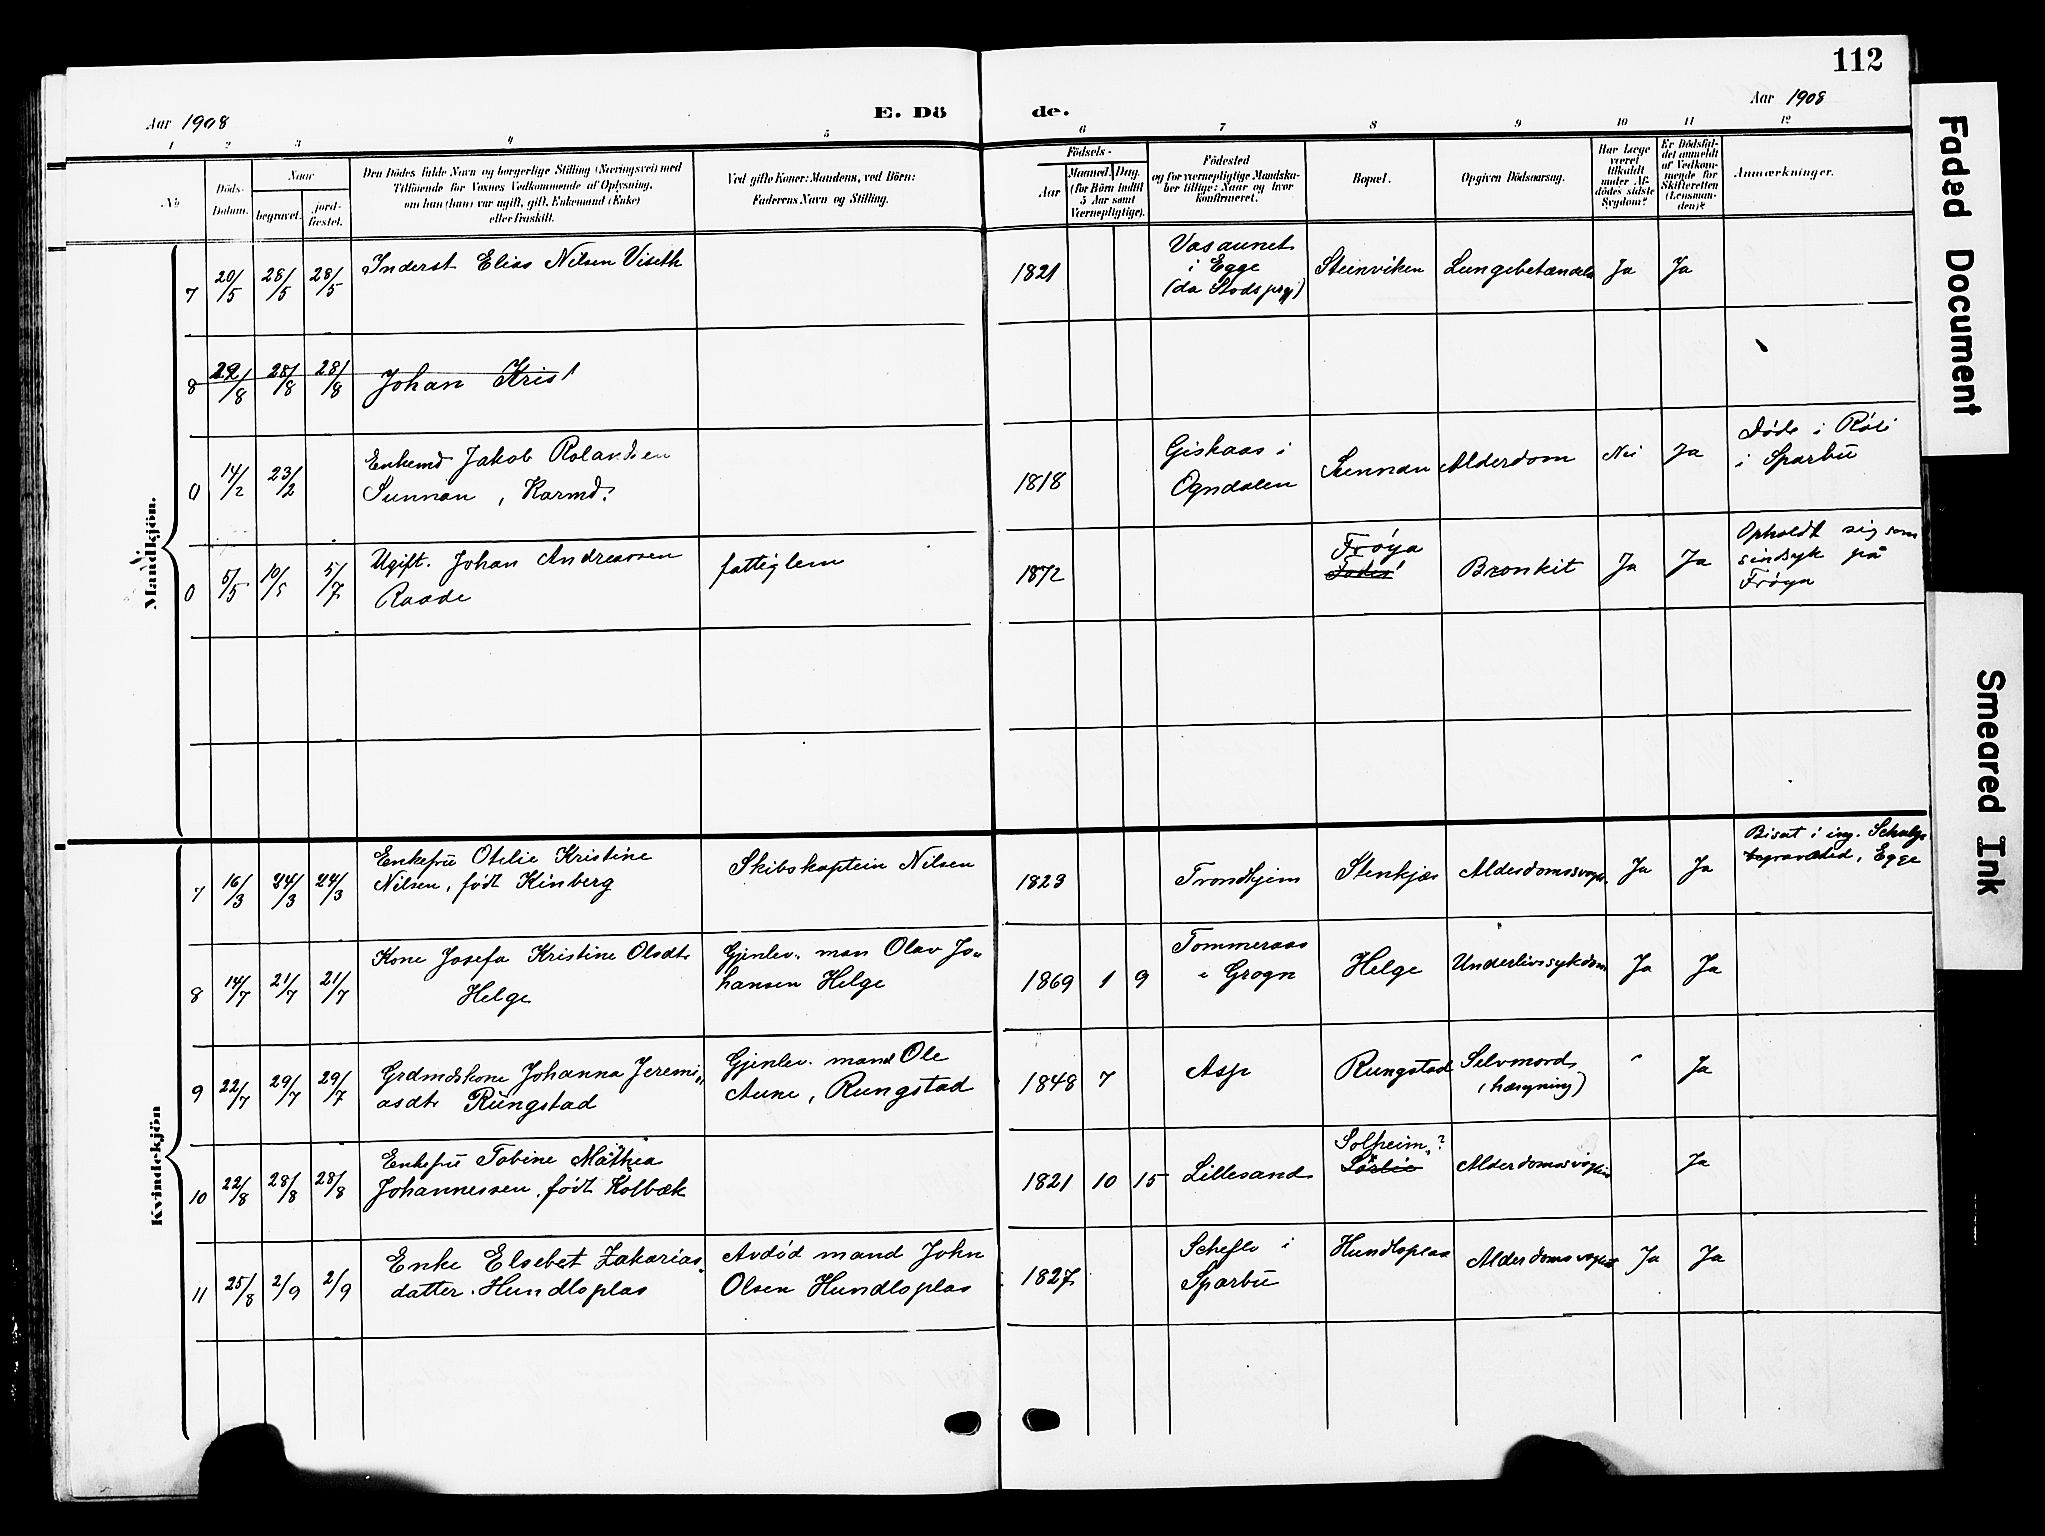 112
Aar 1908
E. Dö
de.
Aar 1908
1 2 3 4 5 6 7 8 9 10 11 12
No
Döds-
Datum.
Naar
begravet.
jord-
fæstet.
Den Dödes fulde Navn og borgerlige Stilling (Næringsvei) med
Tilföiende for Voxnes Vedkommende af Oplysning,
om han (hun) var ugift, gift, Enkemand (Enke)
eller fraskilt.
Ved gifte Koner: Mandens, ved Börn:
Faderens Navn og Stilling.
Födsels-
Aar
Maaned.
Dag.
(for Börn indtil
5 Aar samt
Værnepligtige).
Födested
og for værnepligtige Mandska-
ber tillige: Naar og hvor
konfirmeret.
Bopæl.
Opgiven Dödsaarsag.
Har Læge
været
tilkaldt
under Af-
dödes sidste
Sygdom?
Er Dödsfal-
det anmeldt
af Vedkom-
mende for
Skifteretten
(Lensman-
den)?
Anmærkninger.
Mandkjön.
7 20/5 28/5 28/5 Inderst Elias Nilsen Viseth
1821
Vasaunet
i Egge
(da Stods prgj)
Steinviken
Lungebetændelse
Ja
Ja
8 22/8 28/8 28/8 Johan Krist
0 14/2 23/2 Enkemd Jakob Rolandsen
Sunnan, Karmd.
1818
Giskaas i
Ogndalen
Sunnan
Alderdom
Nei
Ja
Døde i Røli
i Sparbu
0 5/5 10/5 5/7 Ugift. Johan Andreassen
Raade
fattiglem
1872
Frøya
Bronkit
Ja
Ja
Opholdt sig som
sindsyk på
Frøya
Kvindekjön
7 16/3 24/3 24/3 Enkefru Otelie Kristine
Nilsen, født Kinberg
Skibskaptein Nilsen
1823
Trondhjem
Stenkjær
Ja
Ja
Bisat i ing. Schulz
begravested, Egge
8 14/7 21/7 21/7 Kone Josefa Kristine Olsdtr
Helge
Gjenlev. man Olav Jo-
hansen Helge
1869 1 9
Tommeraas
i Grogn
Helge
Underlivssykdom
Ja
Ja
9 22/7 29/7 29/7 Grdmdskone Johanna Jeremi-
asdtr Rungstad
Gjenlev. mand Ole
Aune, Rungstad
1848 7
Asp
Rungstad
Selvmord
(hængning)
Ja
10 22/8 28/8 28/8 Enkefru Tobine Mathea
Johannessen, født Kolbæk
1821 10 15
Lillesand
Solheim, ?
Ja
11 25/8 2/9 2/9 Enke Elsebet Zakarias-
datter Hundloplas
Avdød mand John
Olsen Hundloplas
1827
Scheflo i
Sparbu
Hundloplas
Ja
Ja
Faded Document
Smeared Ink